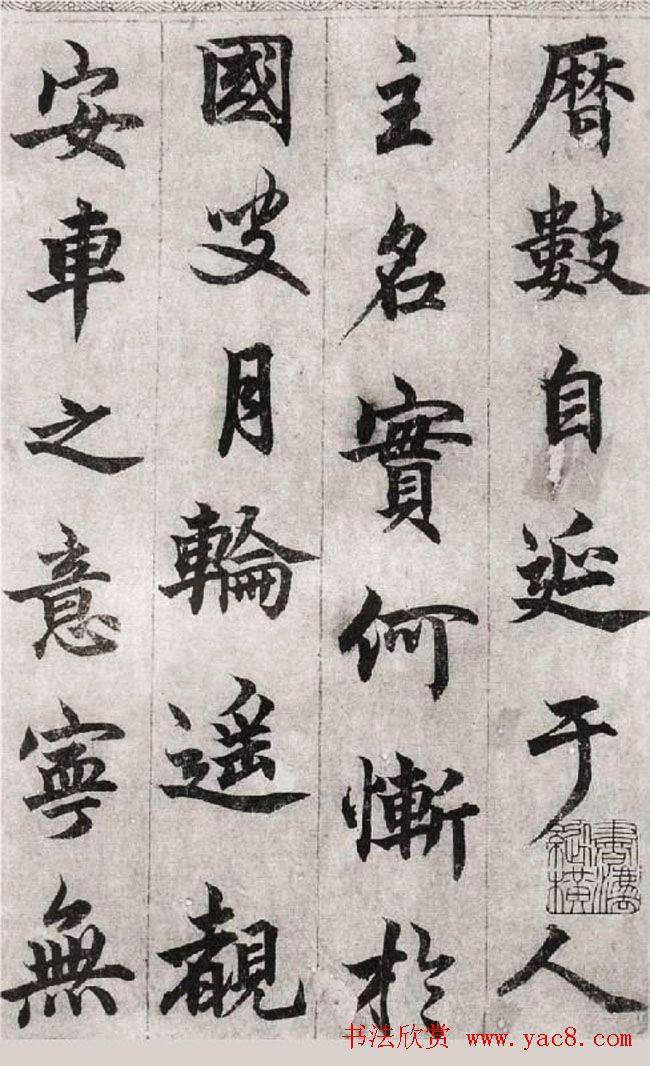 曆數自延于人
主名實何慚於
國叟月輪遥覩
安車之意寧無
書灋
縱橫
书法欣赏 www.yac8.com